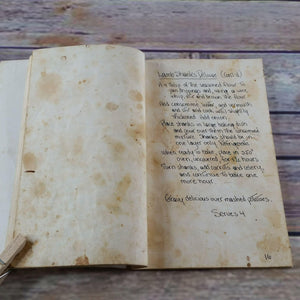 Lamb Shanks Deluxe (cont'd)
4 tbsp of the seasoned flour to
pan drippings and, using a wire
whip, stir and brown the flour
Add consommé, water, and vermouth
and stir and cook until slightly
thickened. Add onion.
Place shanks in large baking dish
and pour over them the consommé
mixture. Shanks should be in
one layer only.
When ready to bake, place in 350°
oven, uncovered for 1½ hours.
Turn shanks, add carrots and celery
and continue to bake one
more hour.
Gravy delicious over mashed potatoes.
Serves 4
16